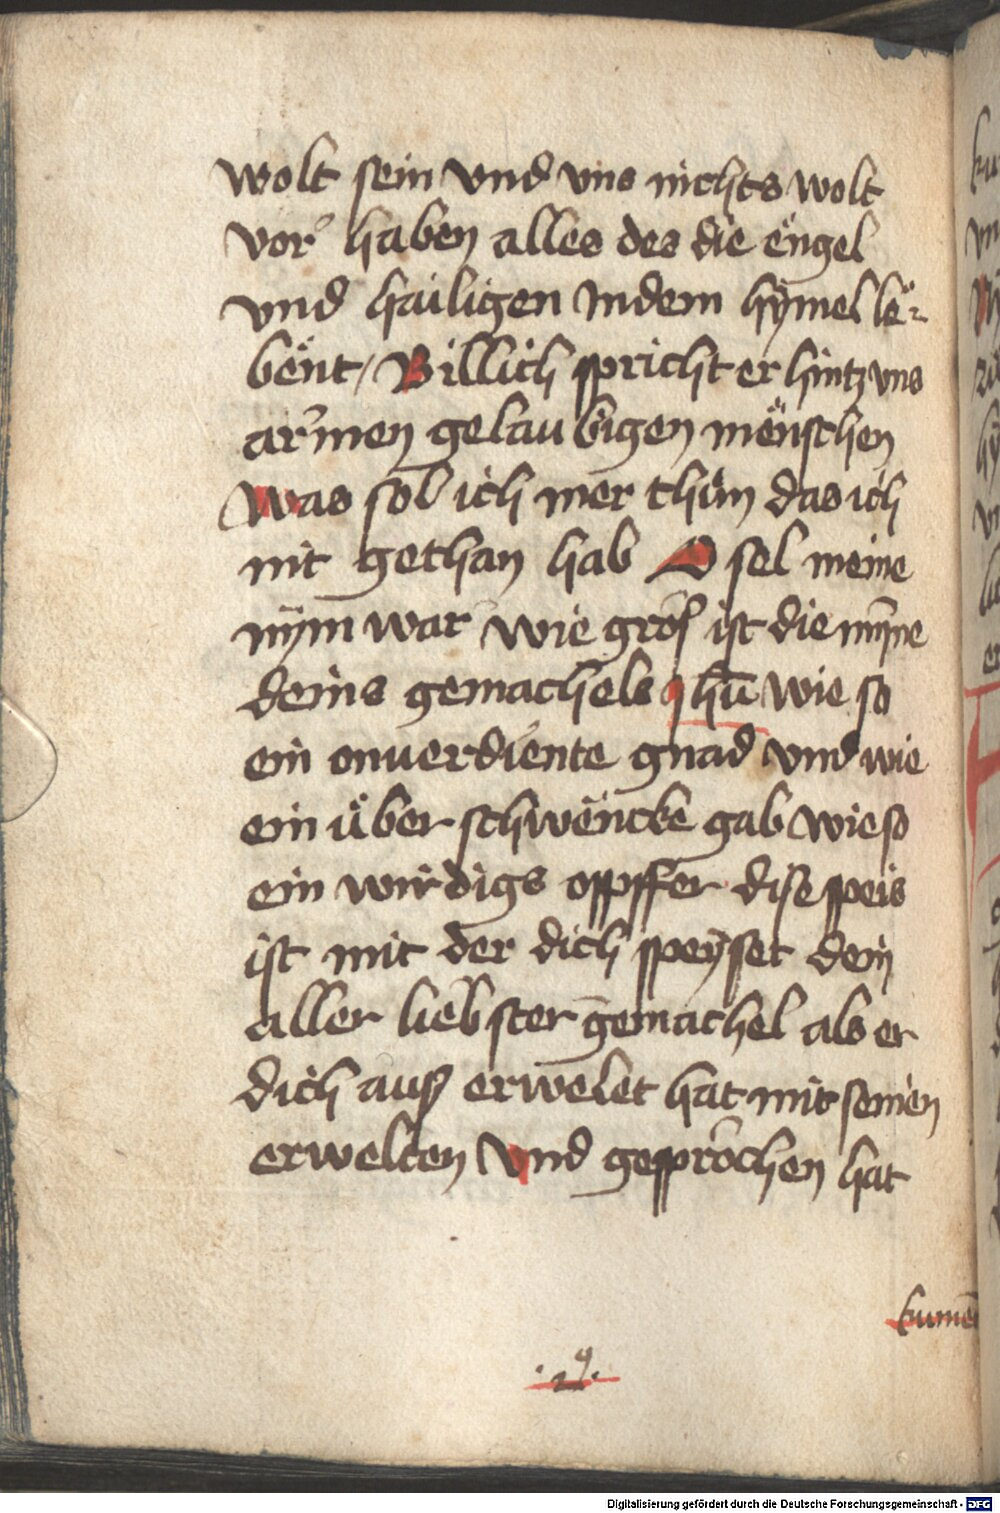 wolt sein vnd vns nichts wolt
vor haben alles des die engel
vnd hailigen Jndem hÿmel le⸗
bent / Billich spricht er hintz vns
armen gelaubigen menschen
Was sol ich mer thůn das ich
nit gethan hab O sel meine
nÿm war wie groß ist die mỹne
deins gemachels jhū wie so
ein onuerdiente gnad vnd wie
ein über schwencke gab wie so
ein wirdigs oppffer dise speis
ist mit der dich speÿset dein
aller liebster gemachel als er
dich auß erwelet hat mit seinen
erwelten Vnd gesprochen hat
kumē
Digitalisierung gefördert durch die Deutsche Forschungsgemeinschaft - DFG